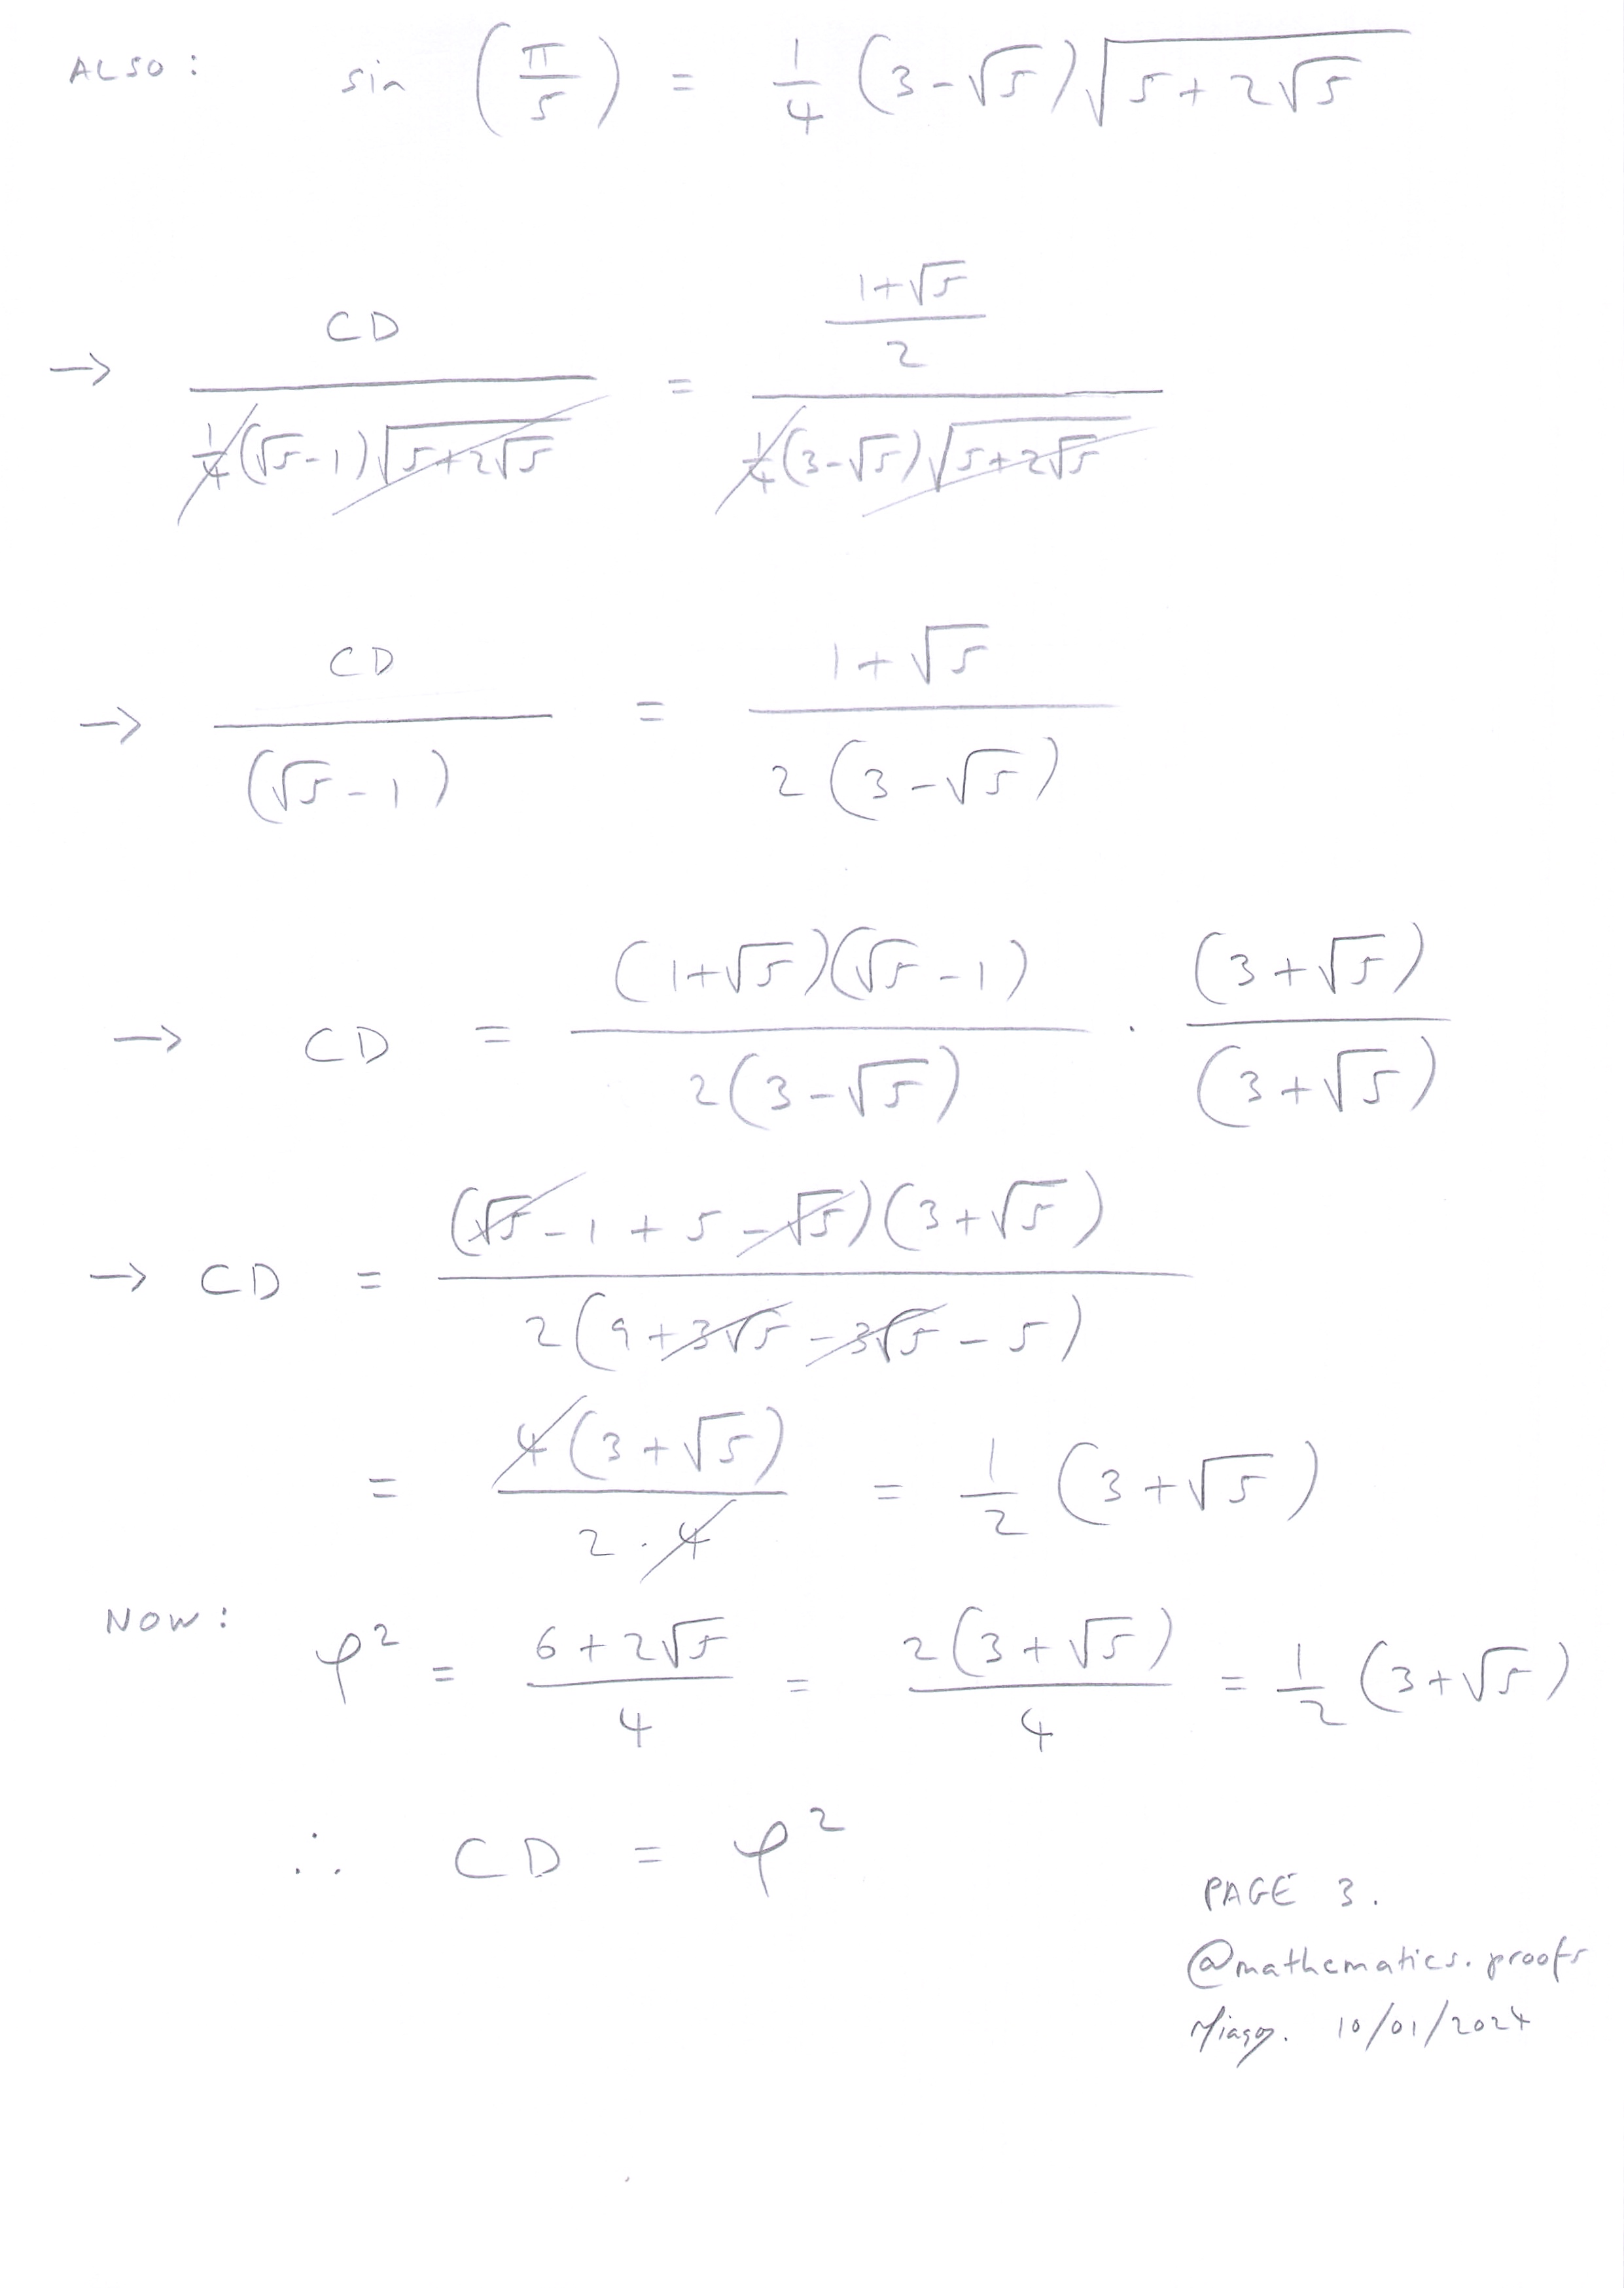 ALSO: sin (π/5) = 1/4 (3-√5)√(5+2√5)
→ CD / (1/4 (√5-1)√(5+2√5)) = ((1+√5)/2) / (1/4 (3-√5)√(5+2√5))
→ CD / (√5-1) = (1+√5) / (2(3-√5))
→ CD = (1+√5)(√5-1) / (2(3-√5)) · (3+√5) / (3+√5)
→ CD = (√5-1+5-√5)(3+√5) / (2(9+3√5-3√5-5))
= 4(3+√5) / (2·4) = 1/2 (3+√5)
NOW: φ² = (6+2√5)/4 = 2(3+√5)/4 = 1/2 (3+√5)
∴ CD = φ²
PAGE 3.
@mathematics.proofs
10/01/2024